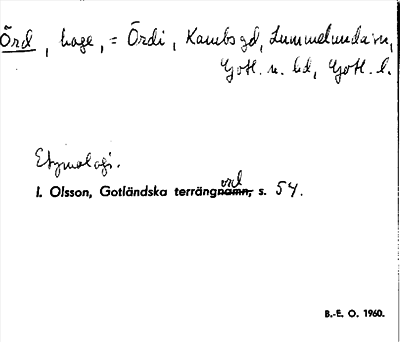 Örd, hage, = Ördi, Kambs gd, Lummelunda sn,
Gotl. n. hd, Gotl. l.
Etymologi.
I. Olsson, Gotländska terrängnamn, ord s. 54.
B.-E. O. 1960.